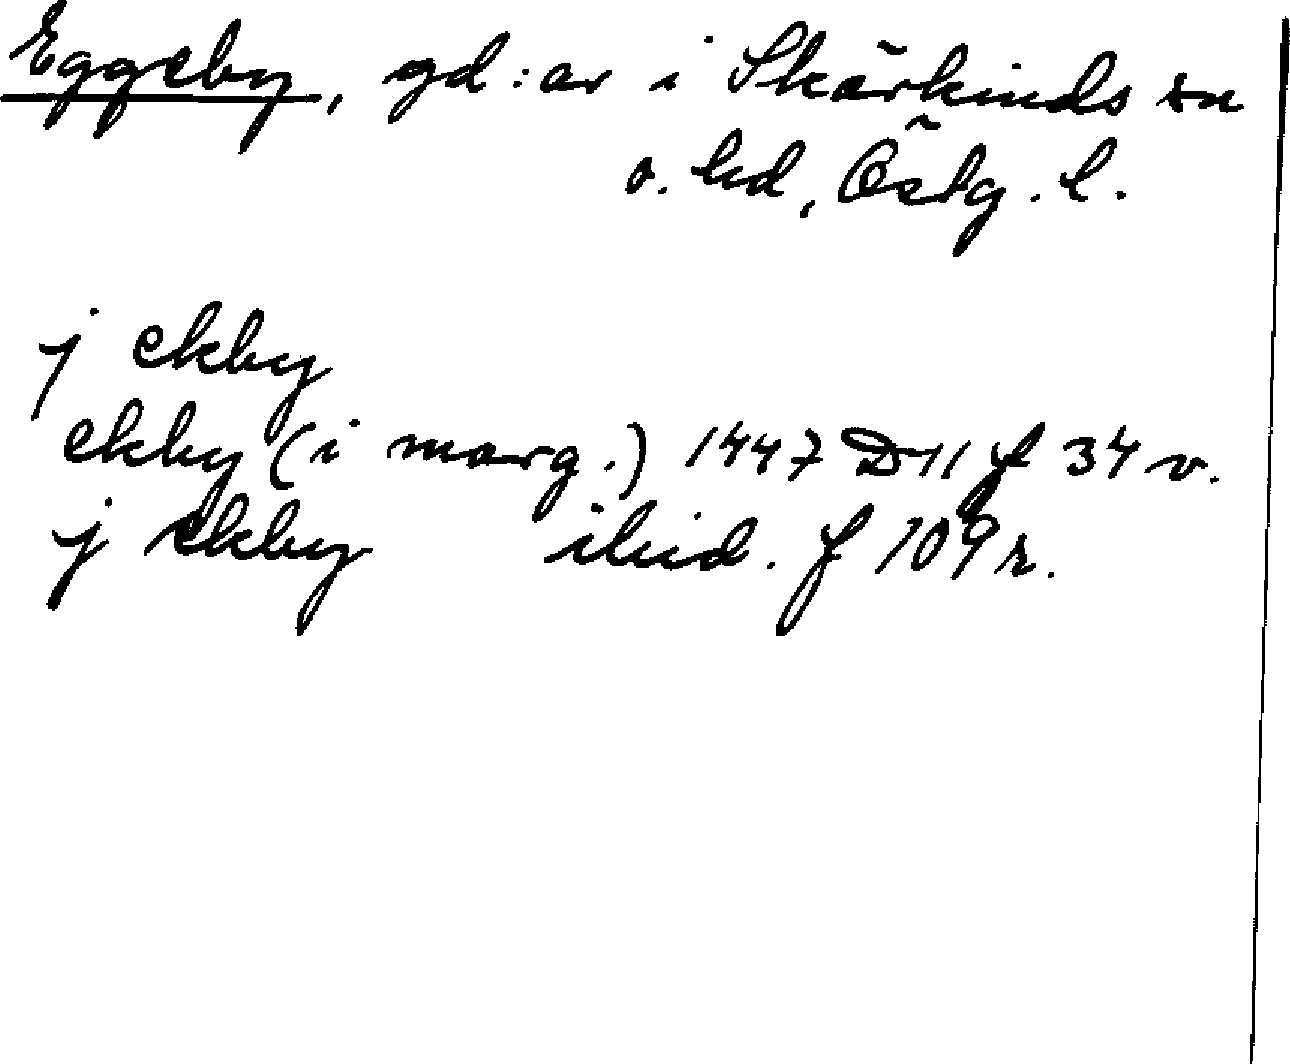 Eggeby, gd:ar i Skärkinds sn
o. hd, Östg. l.
j ekby
ekby (i marg.) 1447 D 11 f 34 v.
j ekby ibid. f 109 r.